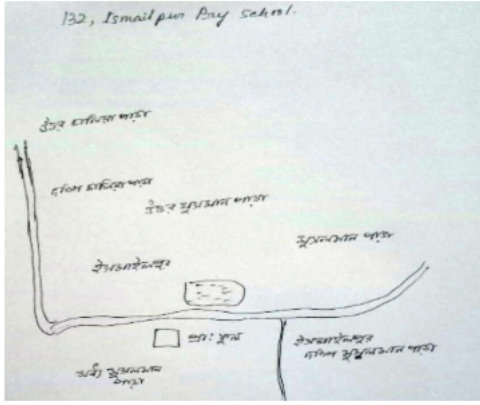 132, Ismailpur Bry school.
উত্তর ঢালিরা পাড়া
দক্ষিণ ঢালিরা পাড়া
উত্তর মুসলমান পাড়া
মুসলমান পাড়া
ইসমাইলপুর
প্রাঃ স্কুল
ইসমাইলপুর
দক্ষিণ মুসলমান পাড়া
মধ্য মুসলমান
পাড়া